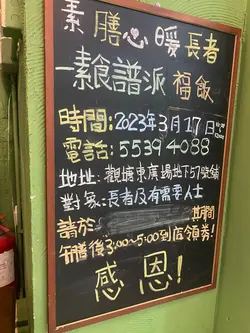 素膳心暖長者
一素食譜派福飯
時間:2023年3月17日
電話:5539 4088
地址:觀塘東廣場地下57號舖
對象:長者及有需要人士
請於 其間
午膳後3:00~5:00到店領券!
感恩!